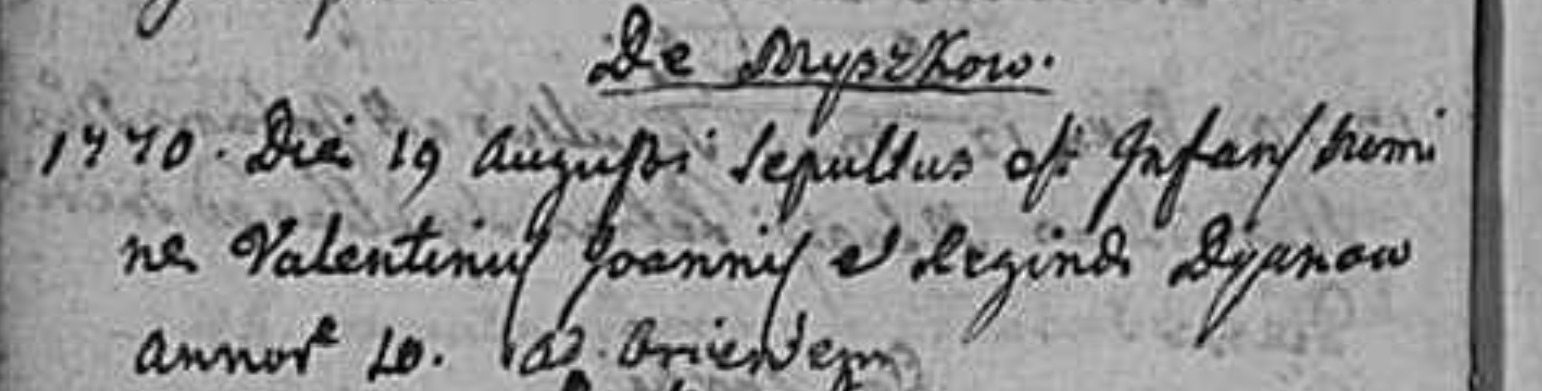 De Myszkow.
1770. Die 19 Augusti Sepultus est Infans nomi
ne Valentinus Joannis et Reginae Dyanow
Annor 10. ad Orientem